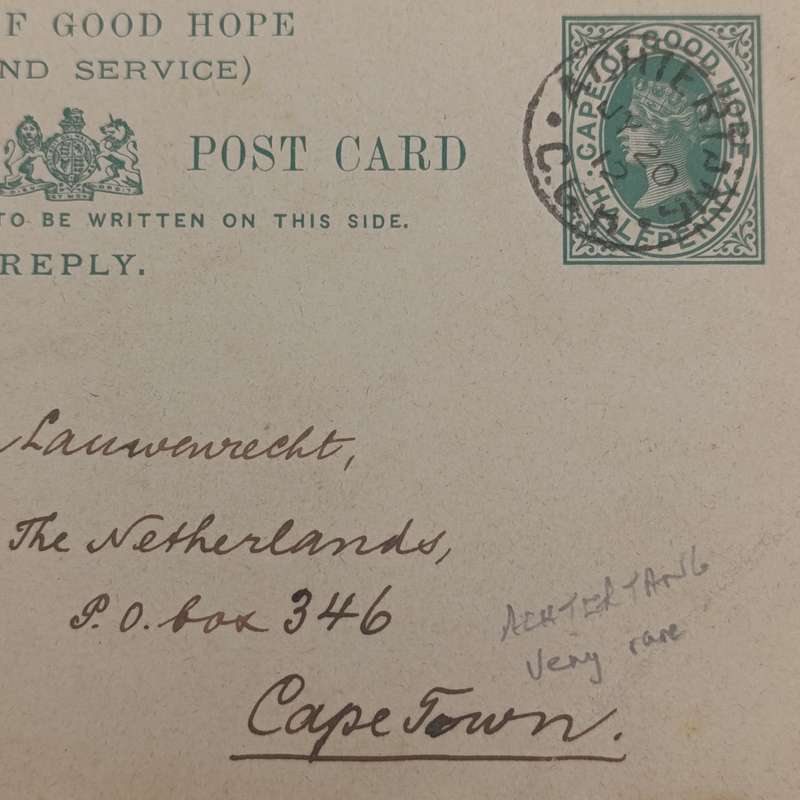 F GOOD HOPE
ND SERVICE)
POST CARD
TO BE WRITTEN ON THIS SIDE.
REPLY.
CAPE OF GOOD HOPE
HALFPENNY
ACHTERTANG
JY 20
12
C.G.H.
Lauwenrecht,
The Netherlands,
P.O. box 346
Cape Town.
ACHTERTANG
Very rare